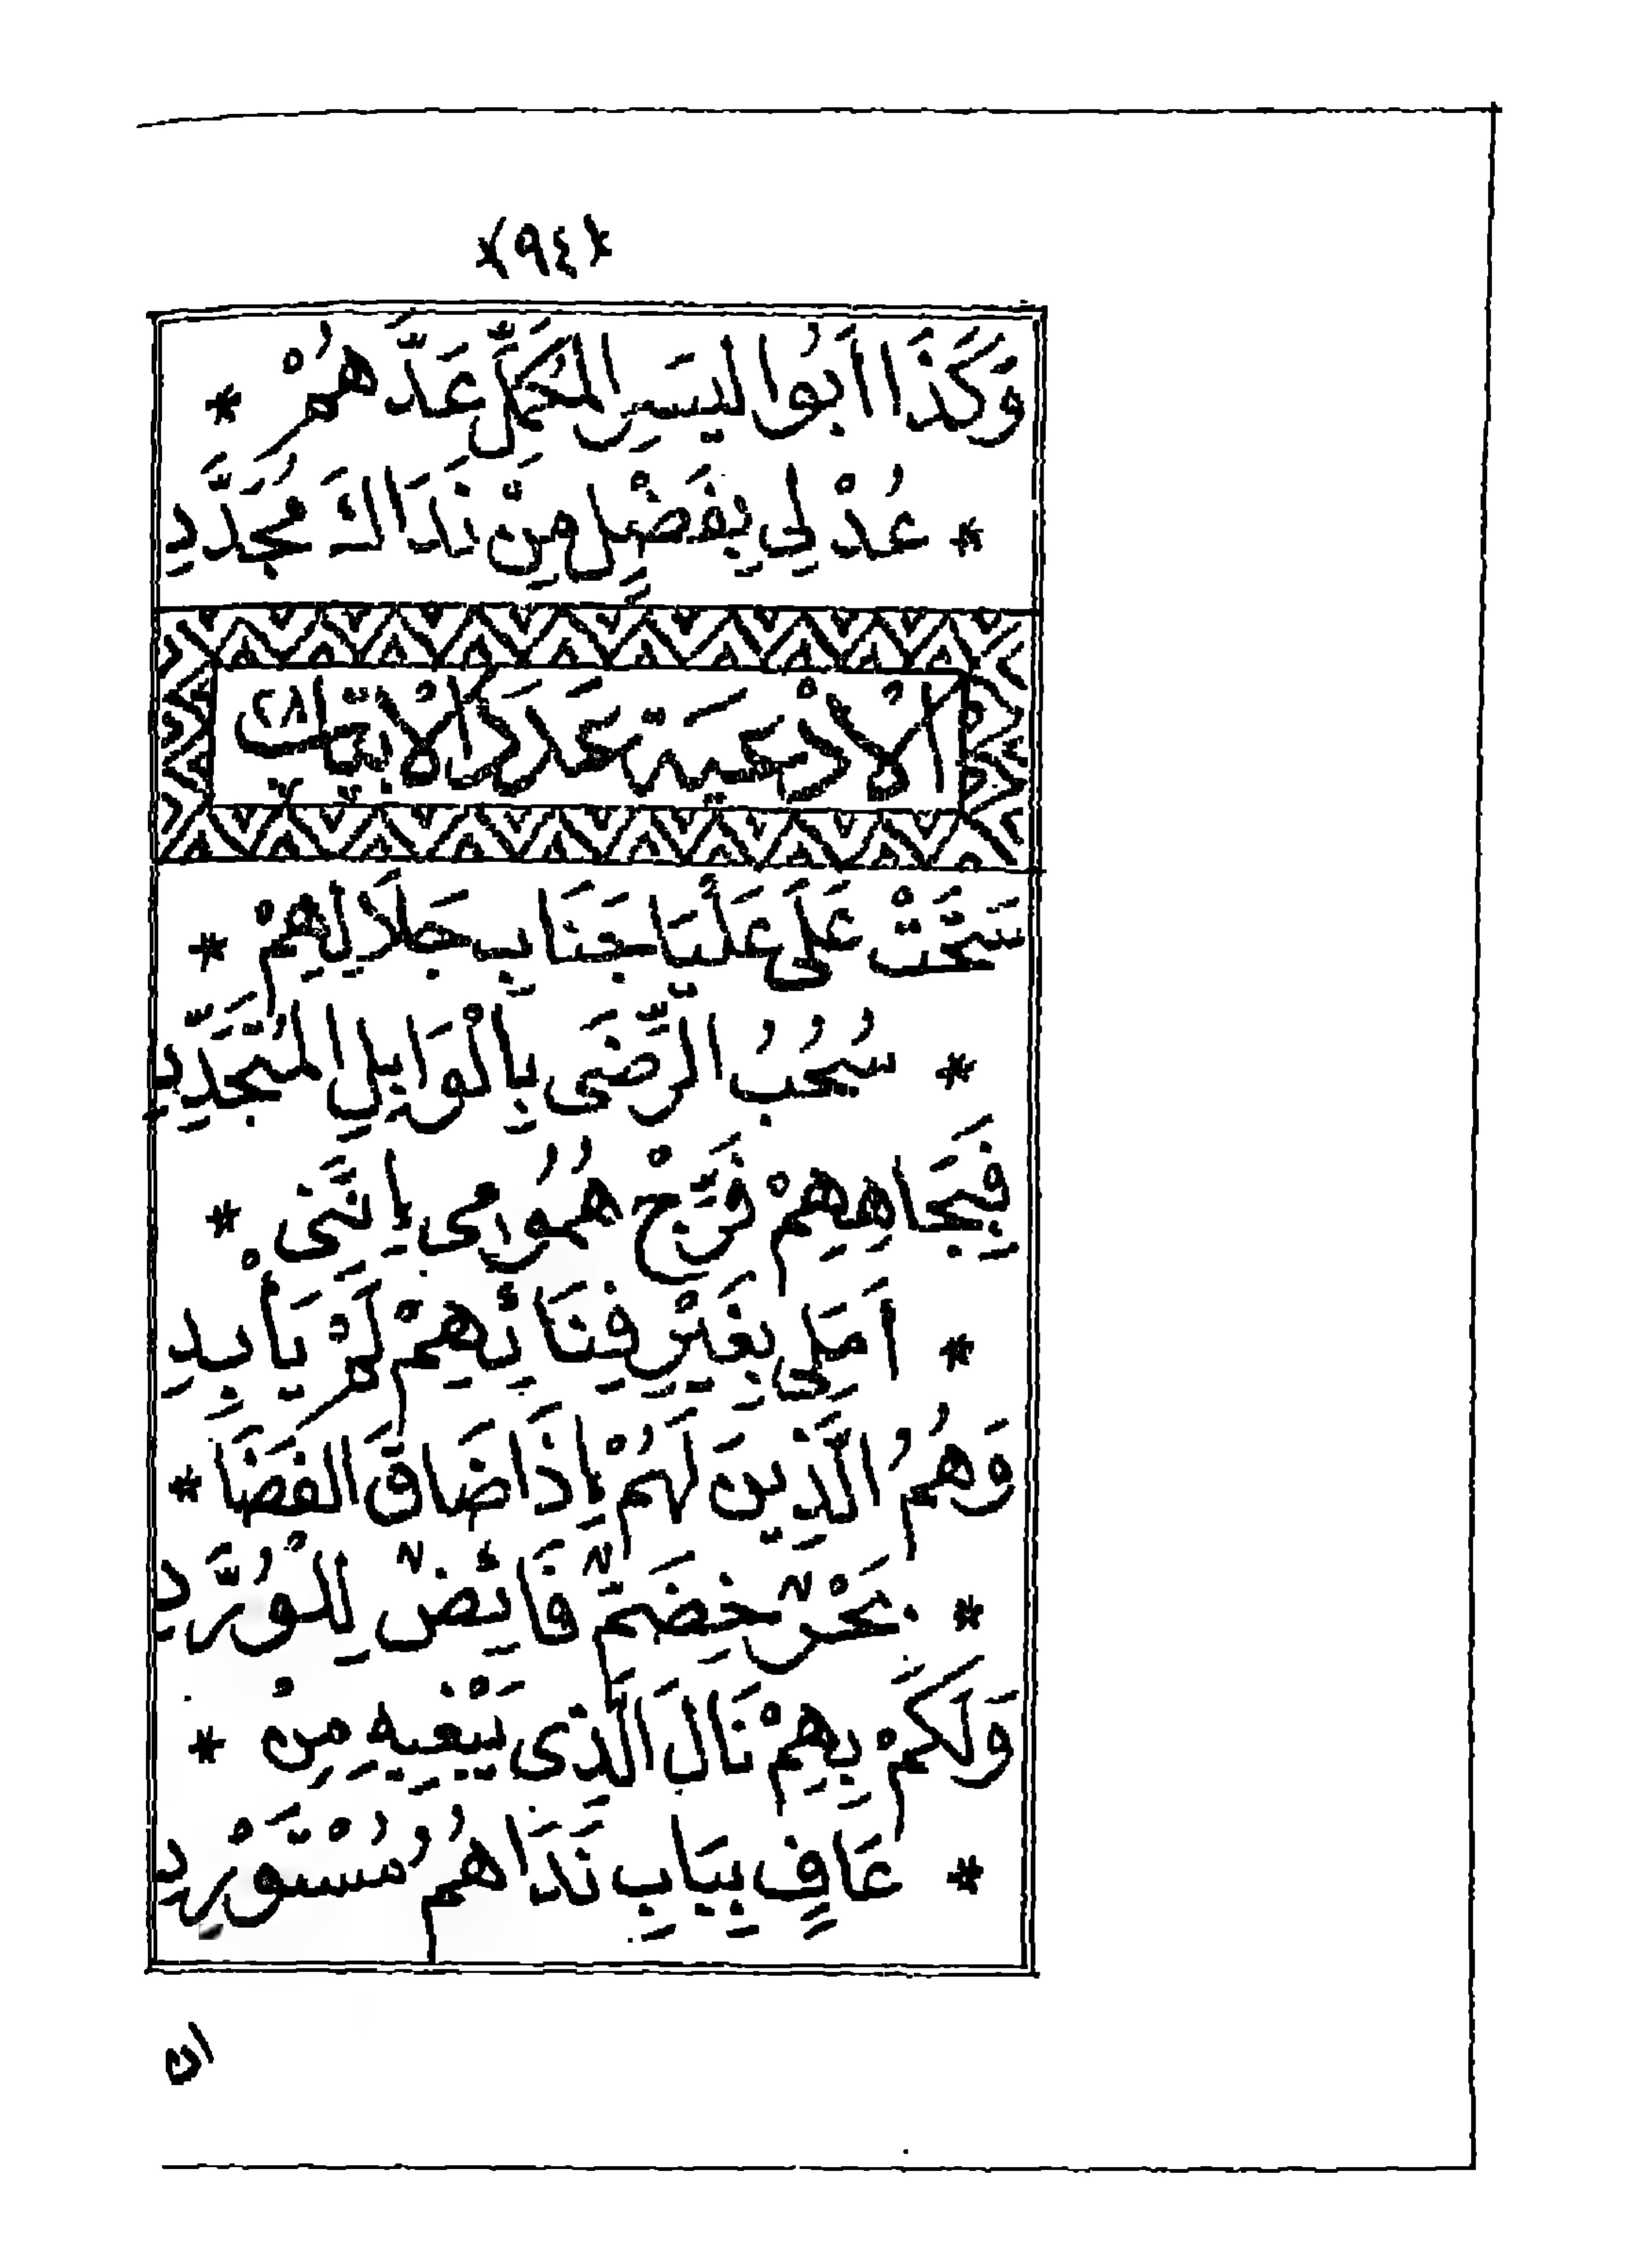 *(٩٤)*
وَكَذَا اَبُوا اليَسَرِ المُكَمَّلِ عَدَّهُمْ *
* عُدْ لِي بِفَضْلٍ مِنْ نَدَاكَ مُجَدَّدِ
اَلْاَدْعِيَة عَدَدَ الْاَبْيَات ٢٨
سَحَّتْ عَلَى عَلْيَا جَنَابِ جَلَالِهِمْ *
* سُحُبُ الرِّضَى بِالْوَابِلِ المُتَجَدِّدِ
فَبِجَاهِهِمْ فَرِّجْ هُمُومِى اِنَّنِى *
* اَمَلِى بِغَيْرِ فِنَائِهِمْ لَمْ يَأْبِدِ
وَهُمُ الَّذِينَ لَهُمْ اِذَا ضَاقَ الفَضَا *
* بَحْرٌ خِضَمٌّ فَائِضٌ لِلْوُرَّدِ
وَلَكَمْ بِهِمْ نَالَ الَّذِى يَبْغِيهِ مِنْ *
* عَافٍ بِبَابِ نَدَاهُمُ مُسْتَوْرِدِ
ان